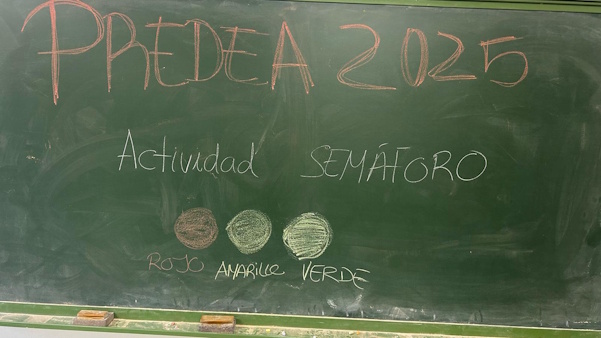 PREDEA 2025
Actividad SEMÁFORO
ROJO AMARILLO VERDE